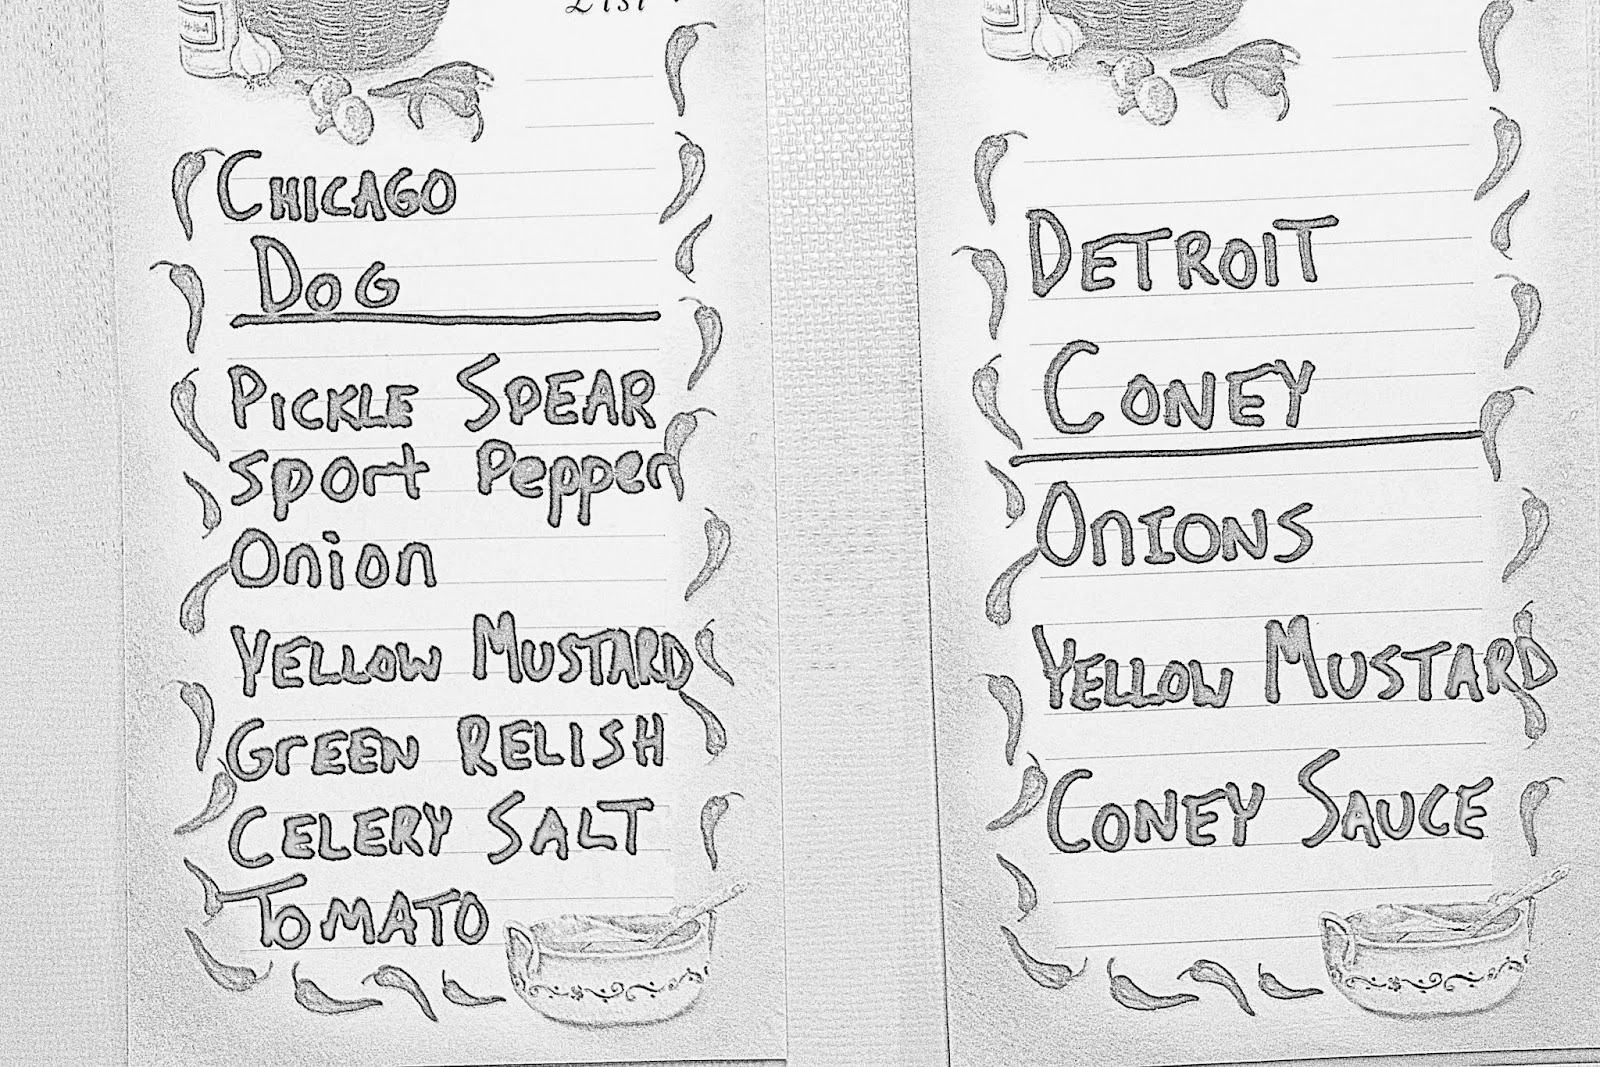 List
Chicago
Dog
Pickle Spear
Sport Pepper
Onion
Yellow Mustard
Green Relish
Celery Salt
Tomato
Detroit
Coney
Onions
Yellow Mustard
Coney Sauce